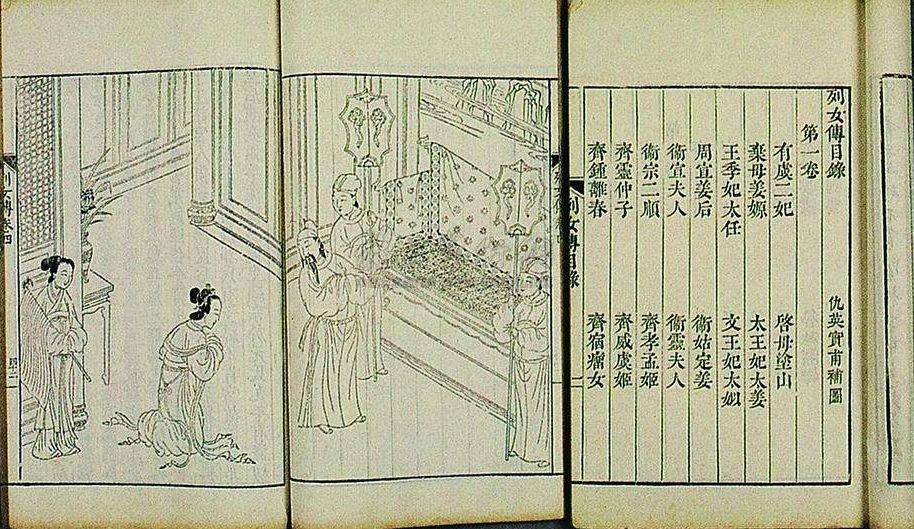 列女傳目錄
第一卷 仇英實甫補圖
有虞二妃 啓母塗山
棄母姜嫄 太王妃太姜
王季妃太任 文王妃太姒
周宣姜后 衛姑定姜
衛宣夫人 衛靈夫人
衛宗二順 齊孝孟姬
齊靈仲子 齊威虞姬
齊鍾離春 齊宿瘤女
列女傳目錄 一
列女傳卷四